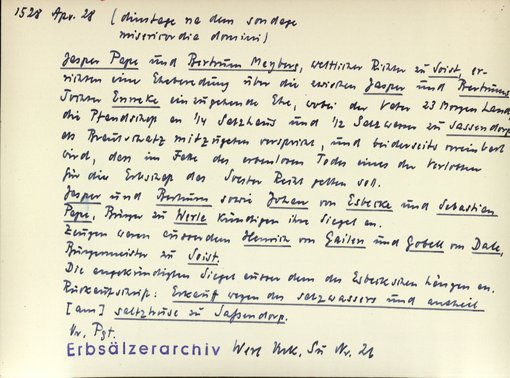 1528 Apr. 28 (dinstage na dem sondage
misericordia domini)
Jasper Pape und Bertram Meyberg, weltlicher Richter zu Soist, er-
richten eine Eheberedung über die zwischen Jasper und Bertrams
Tochter Enneke einzugehende Ehe, wobei der Vater 23 Morgen Land,
die Pfandschop an 1/4 Salzhaus und 1/2 Salzwasser zu Sassendorp
als Brautschatz mitzugeben verspricht, und beiderseits vereinbart
wird, dass im Falle des erbenlosen Todes eines der Verlobten
für die Erbschop das Soester Recht gelten soll.
Jasper und Bertram sowie Johan von Esbecke und Sebastian
Pape, Bürger zu Werle kündigen ihre Siegel an.
Zeugen waren ausserdem Hinrich von Galten und Gobell von Dale,
Bürgermeister zu Soist.
Die angekündigten Siegel ausser dem des Esbeckschen hängen an.
Rückaufschrift: Erkauff wegen des saltzwassers und antheil
[am] saltzhuse zu Saßendorp.
Or. Pgt.
Erbsälzerarchiv Werl Urk. Su Nr. 26